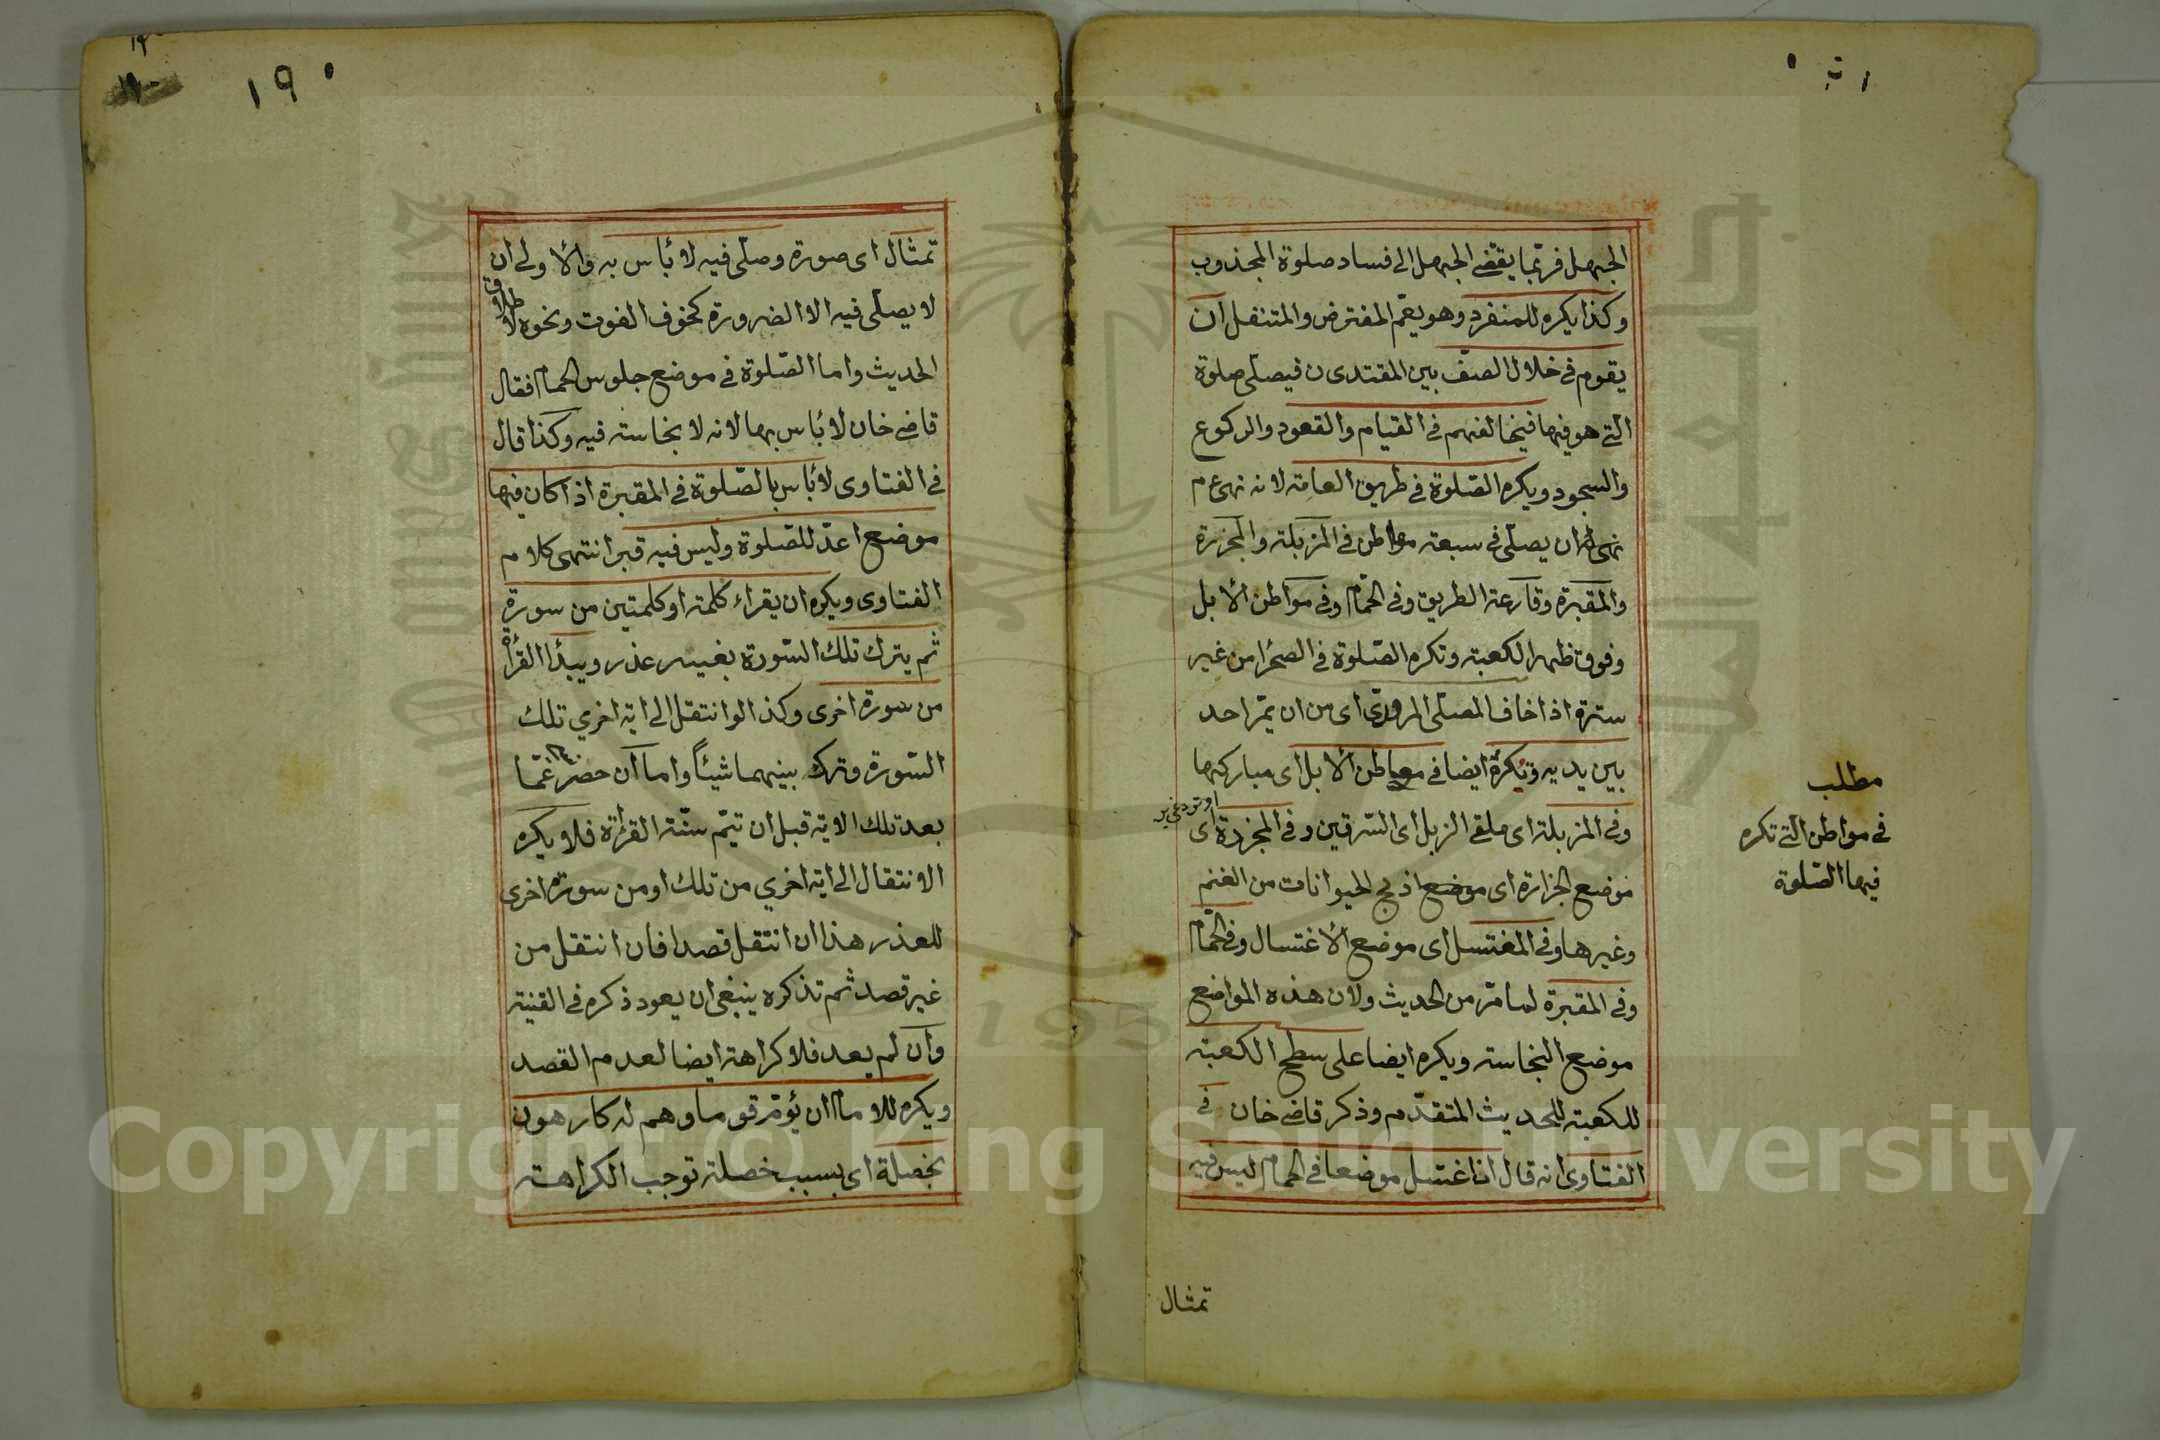 الجهل فربما يفضى الجهل الى فساد صلوة المجذوب
وكذا يكره للمنفرد وهو يعم المفترض والمتنفل ان
يقوم في خلال الصف بين المقتدى ن فيصلى صلوة
التى هو فيها فيخالفهم في القيام والقعود والركوع
والسجود ويكره الصلوة في طريق العامة لانه نهى ع م
نهى ان يصلى في سبعة مواطن في المزبلة والمجزرة
والمقبرة وقارعة الطريق وفي الحمام وفي مواطن الابل
وفوق ظهر الكعبة وتكره الصلوة في الصحرا من غير
سترة اذا خاف المصلى المرور اى من ان يمر احد
بين يديه وتكره ايضا في معاطن الابل اى مباركها
وفي المزبلة اى ملقى الزبل اى السرقين وفي المجزرة اى
موضع الجزارة اى موضع اذبح الحيوانات من الغنم
وغيرها وفي المغتسل اى موضع الاغتسال وفي الحمام
وفي المقبرة لما مر من الحديث ولان هذه المواضع
موضع النجاسة ويكره ايضا على سطح الكعبة
للكعبة للحديث المتقدم وذكر قاضى خان في
الفتاوى انه قال ان اغتسل موضعا في الحمام ليس فيه
مطلب
في مواطن التى تكره
فيها الصلوة
تمثال
١٩٠
تمثال اى صورة وصلى فيه لا باس به والاولى ان
لا يصلى فيه الا الضرورة كخوف الفوت ونحوه لاطلاق
الحديث واما الصلوة في موضع جلوس الحمام فقال
قاضى خان لا باس بها لانه لا نجاسة فيه وكذا قال
في الفتاوى لا باس بالصلوة في المقبرة اذا كان فيها
موضع اعد للصلوة وليس فيه قبر انتهى كلام
الفتاوى ويكره ان يقراء كلمة او كلمتين من سورة
ثم يترك تلك السورة بغير عذر ويبدأ القرأة
من سورة اخرى وكذا لو انتقل الى اية اخرى تلك
السورة وترك بينهما شيئا واما ان حصر عما
بعد تلك الاية قبل ان تيتم سنة القراة فلا يكره
الانتقال الى اية اخرى من تلك او من سورة اخرى
للعذر هذا ان انتقل قصدا فان انتقل من
غير قصد ثم تذكره ينبغى ان يعود ذكره في القنية
وان لم يعد فلا كراهة ايضا لعدم القصد
ويكره للامام ان يؤم قوما وهم له كارهون
بخصلة اى بسبب خصلة توجب الكراهة
Copyright © King Saud University
1957